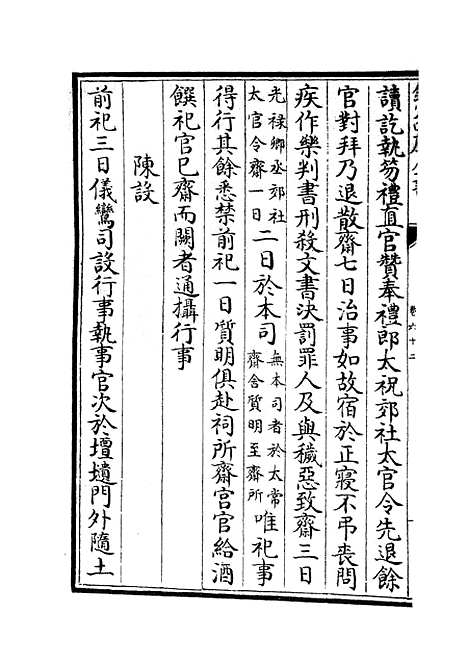 卷六十二
讀訖執笏禮直官贊奉禮郎太祝郊社太官令先退餘
官對拜乃退散齋七日治事如故宿於正寢不弔喪問
疾作樂判書刑殺文書決罰罪人及與穢惡致齋三日
光禄卿丞郊社太官令齋一日二日於本司無本司者於太常齋舍質明至齋所唯祀事
得行其餘悉禁前祀一日質明俱赴祠所齋宫官給酒
饌祀官已齋而闕者通攝行事
陳設
前祀三日儀鸞司設行事執事官次於壇壝門外隨土